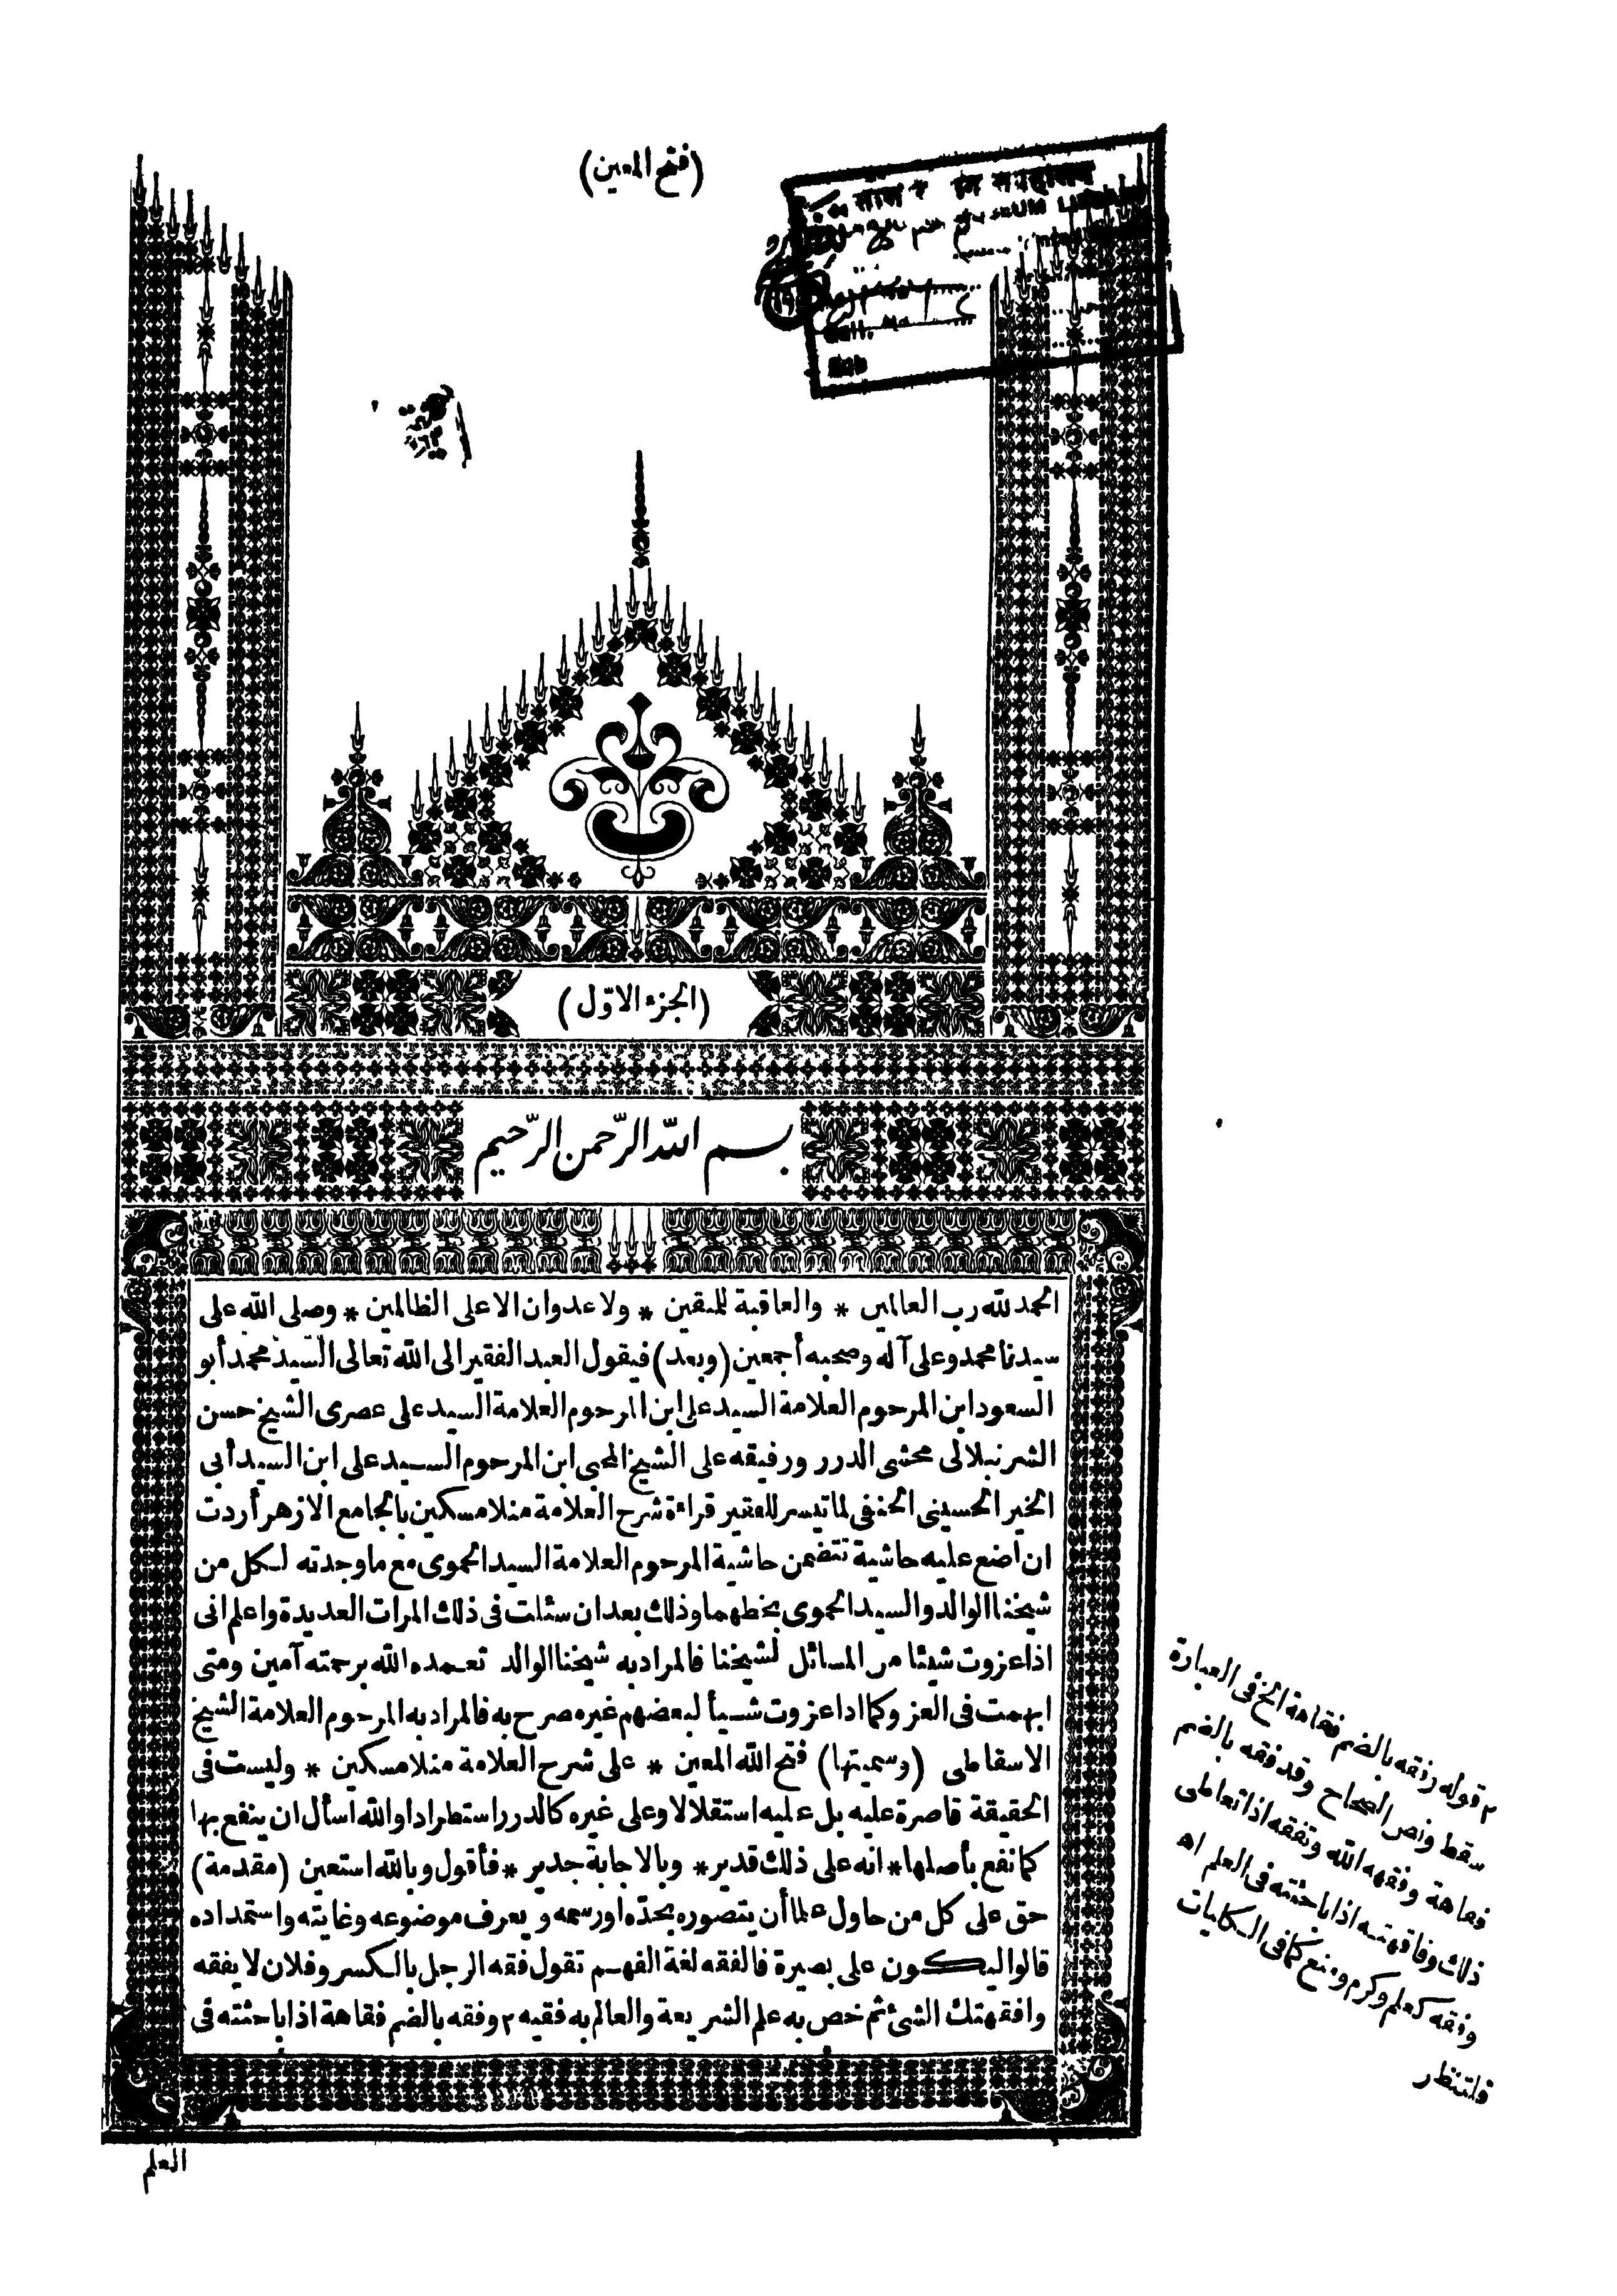 (فتح المعين)
(الجزء الاوّل)
بسم الله الرّحمن الرّحيم
الحمد لله رب العالمين * والعاقبة للمتقين * ولا عدوان الا على الظالمين * وصلى الله على
سيدنا محمد وعلى آله وصحبه أجمعين (وبعد) فيقول العبد الفقير الى الله تعالى السيد محمد أبو
السعود ابن المرحوم العلامة السيد على ابن المرحوم العلامة السيد على عصرى الشيخ حسن
الشرنبلالى محشى الدرر ورفيقه على الشيخ المحبى ابن المرحوم السيد على ابن السيد أبى
الخير الحسينى الحنفى لما تيسر للفقير قراءة شرح العلامة منلا مسكين بالجامع الازهر أردت
ان اضع عليه حاشية تتضمن حاشية المرحوم العلامة السيد الحموى مع ما وجدته لكل من
شيخنا الوالد والسيد الحموى بخطهما وذلك بعد ان سئلت فى ذلك المرات العديدة واعلم انى
اذا عزوت شيئا من المسائل لشيخنا فالمراد به شيخنا الوالد تغمده الله برحمته آمين ومتى
ابهمت فى العزو كما اذا عزوت شيأ لبعضهم غيره صرح به فالمراد به المرحوم العلامة الشيخ
الاسقاطى (وسميتها) فتح الله المعين * على شرح العلامة منلا مسكين * وليست فى
الحقيقة قاصرة عليه بل عليه استقلالا وعلى غيره كالدرر استطرادا والله اسأل ان ينفع بها
كما نفع بأصلها * انه على ذلك قدير * وبالاجابة جدير * فأقول وبالله استعين (مقدمة)
حق على كل من حاول علما أن يتصوره بحدّه اورسمه ويعرف موضوعه وغايته واستمداده
قالوا ليكون على بصيرة فالفقه لغة الفهم تقول فقه الرجل بالكسر وفلان لا يفقه
وافقهتك الشئ ثم خص به علم الشريعة والعالم به فقيه ٢ وفقه بالضم فقاهة اذا باحثته فى
العلم
٢ قوله وفقه بالضم فقاهة الخ فى العبارة
سقط ونص الصحاح وقد فقه بالضم
فقاهة وفقهه الله وتفقه اذا تعاطى
ذلك وفاقهته اذا باحثته فى العلم اه
وفقه كعلم وكرم ومنع كما فى الكليات
فلتنظر